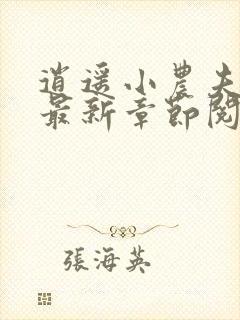 逍遥小農夫
最新章節閱
張海英